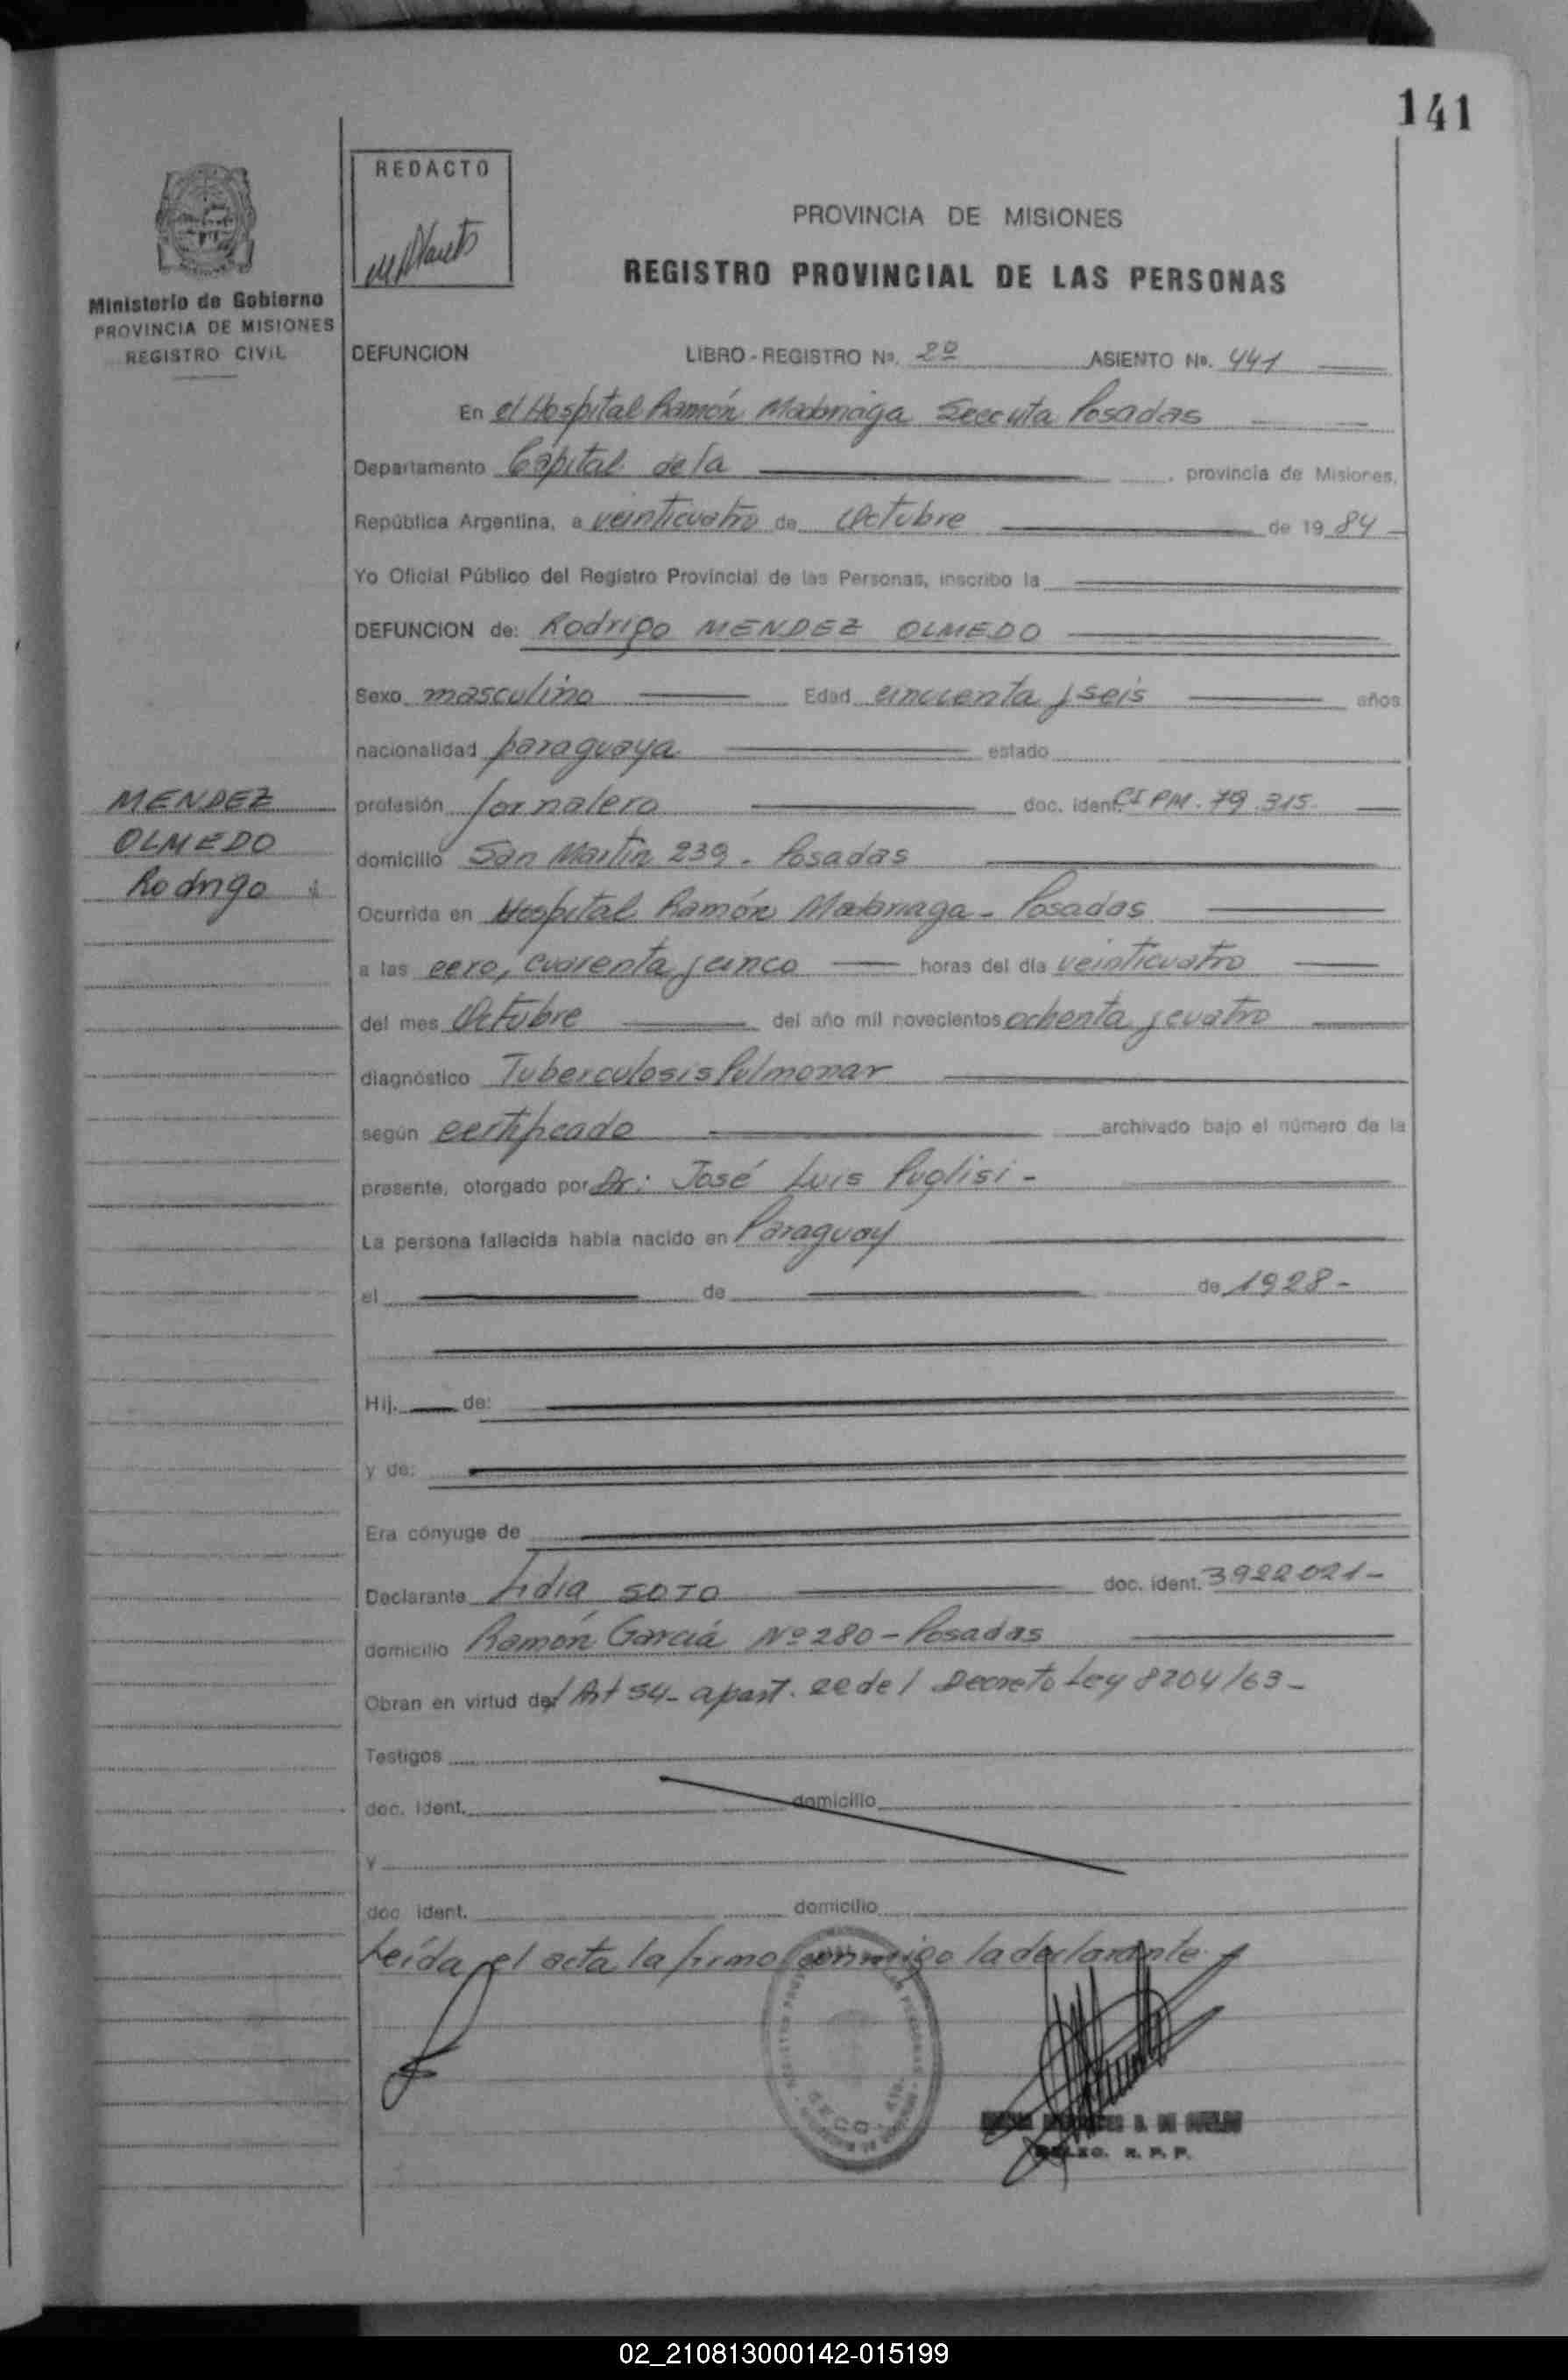 141
REDACTO
PROVINCIA DE MISIONES
REGISTRO PROVINCIAL DE LAS PERSONAS
Ministerio de Gobierno
PROVINCIA DE MISIONES
REGISTRO CIVIL
DEFUNCION LIBRO-REGISTRO No. 2º ASIENTO No. 441
En el Hospital Ramón Madariaga Secc yta Posadas
Departamento Capital de la , provincia de Misiones,
República Argentina, a veinticuatro de Octubre de 1984
Yo Oficial Público del Registro Provincial de las Personas, inscribo la
DEFUNCION de: Rodrigo MENDEZ OLMEDO
Sexo masculino Edad cincuenta y seis años
nacionalidad paraguaya estado
MENDEZ
OLMEDO
Rodrigo
profesión jornalero doc. ident. CI PM. 79.315
domicilio San Martín 239 - Posadas
Ocurrida en Hospital Ramón Madariaga - Posadas
a las cero, cuarenta y cinco horas del día veinticuatro
del mes Octubre del año mil novecientos ochenta y cuatro
diagnóstico Tuberculosis Pulmonar
según certificado archivado bajo el número de la
presente, otorgado por Dr: José Luis Puglisi -
La persona fallecida había nacido en Paraguay
el de de 1928-
Hij. de:
y de:
Era cónyuge de
Declarante Lidia SOTO doc. ident. 3922021-
domicilio Ramón García Nº 280 - Posadas
Obran en virtud del Art 54- apart. del Decreto Ley 8204/63-
Testigos
doc. ident. domicilio
y
doc. ident. domicilio
Leída el acta la firmo conmigo la declarante
R. P. P.
02_210813000142-015199